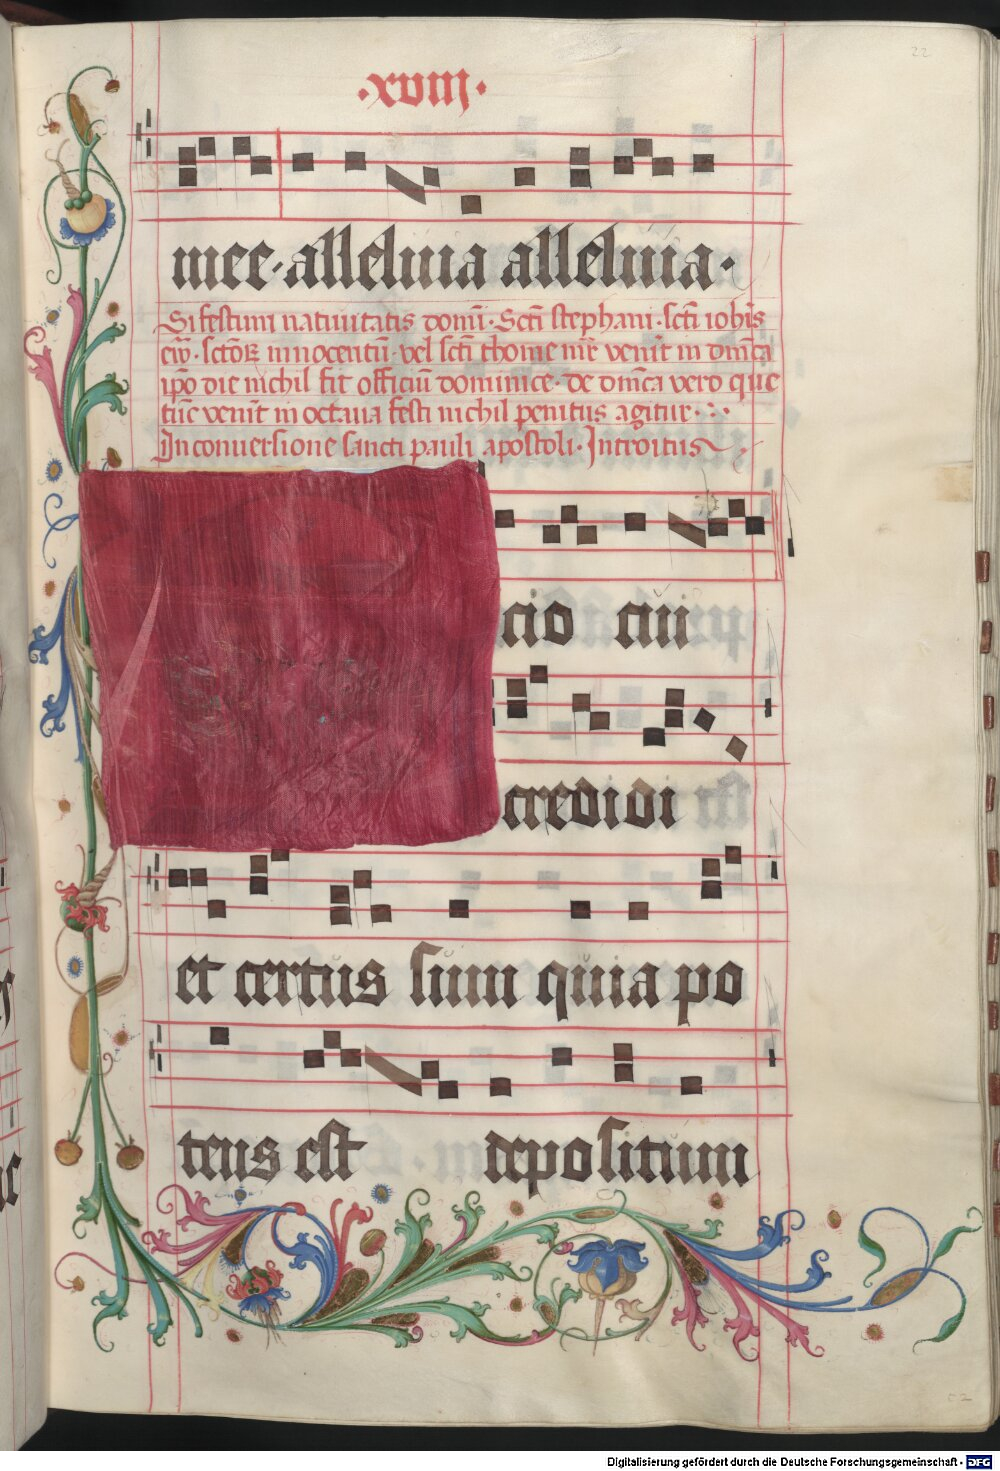 22
·xviij·
mee·alleluia alleluia·
Si festum natiuitatis domī· Scti stephani·scti iohīs
ew̄·sctōꝝ innocentū·vel scti thome mr̄ venit in dm̄ca
ipō die nichil fit officiū dominice·de dm̄ca vero que
tūc venit in octaua festi nichil penitus agitur·
In conuersione sancti pauli apostoli·Introitus
cio cui
credidi
et certus sum quia po
tens est depositum
Digitalisierung gefördert durch die Deutsche Forschungsgemeinschaft - DFG